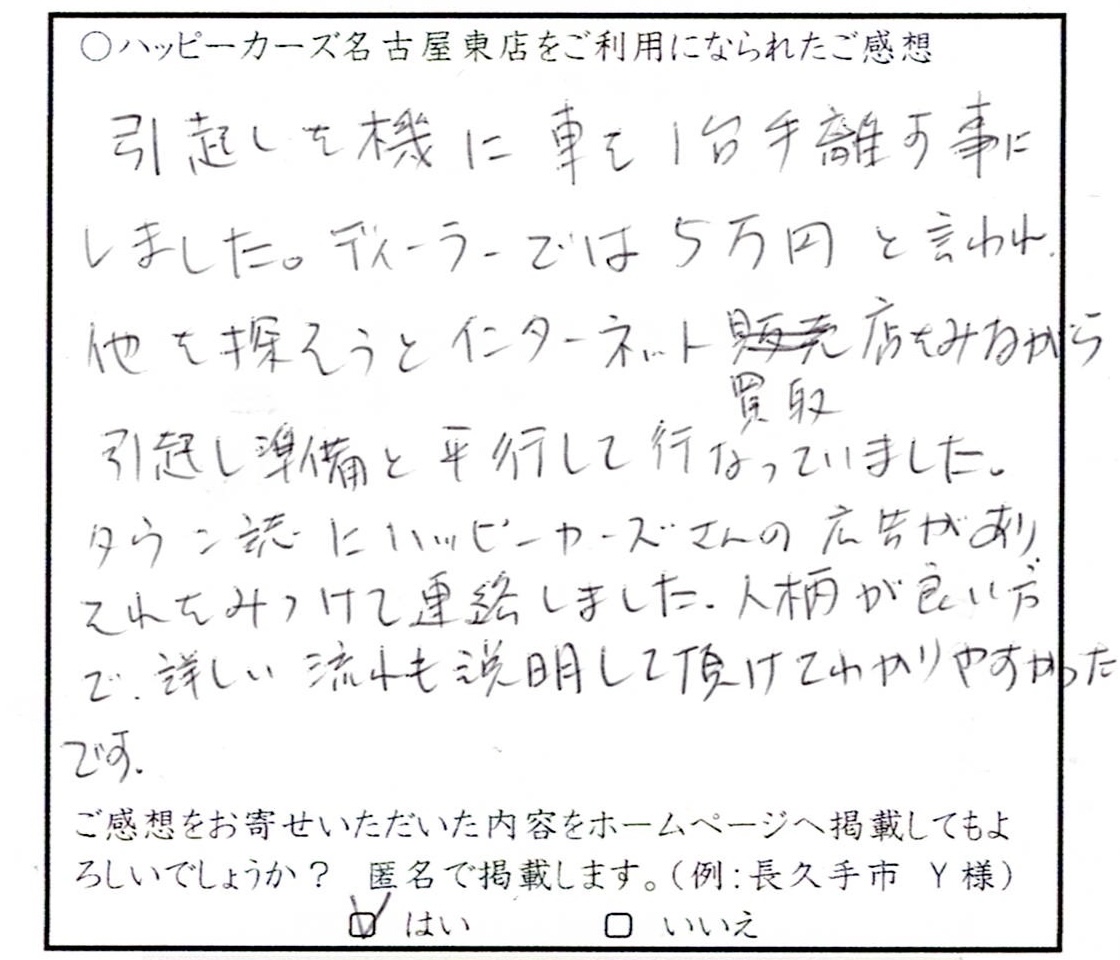 ○ハッピーカーズ名古屋東店をご利用になられたご感想
引起しを機に車を1台手離す事に
しました。ディーラーでは5万円と言われ、
他を探そうとインターネット販売店をみながら
買取
引起し準備と平行して行なっていました。
タウン誌にハッピーカーズさんの広告があり、
それをみつけて連絡しました。人柄が良い方
で、詳しい流れも説明して頂けてわかりやすかった
です。
ご感想をお寄せいただいた内容をホームページへ掲載してもよ
ろしいでしょうか？ 匿名で掲載します。(例:長久手市 Y様)
☑ はい □ いいえ